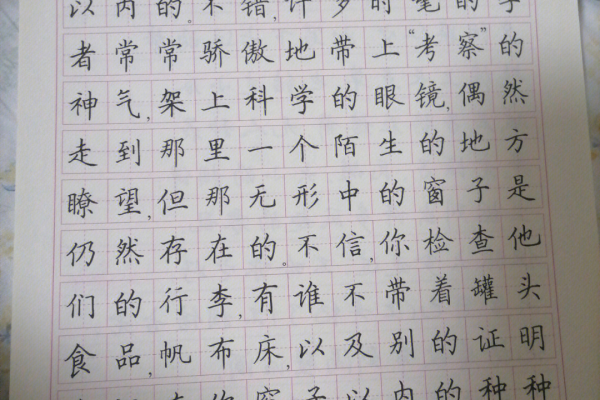 以内的。不错,许多时髦的学
者常常骄傲地带上“考察”的
神气,架上科学的眼镜,偶然
走到那里一个陌生的地方
瞭望,但那无形中的窗子是
仍然存在的。不信,你检查他
们的行李,有谁不带着罐头
食品,帆布床,以及别的证明
你窗子以内的种种